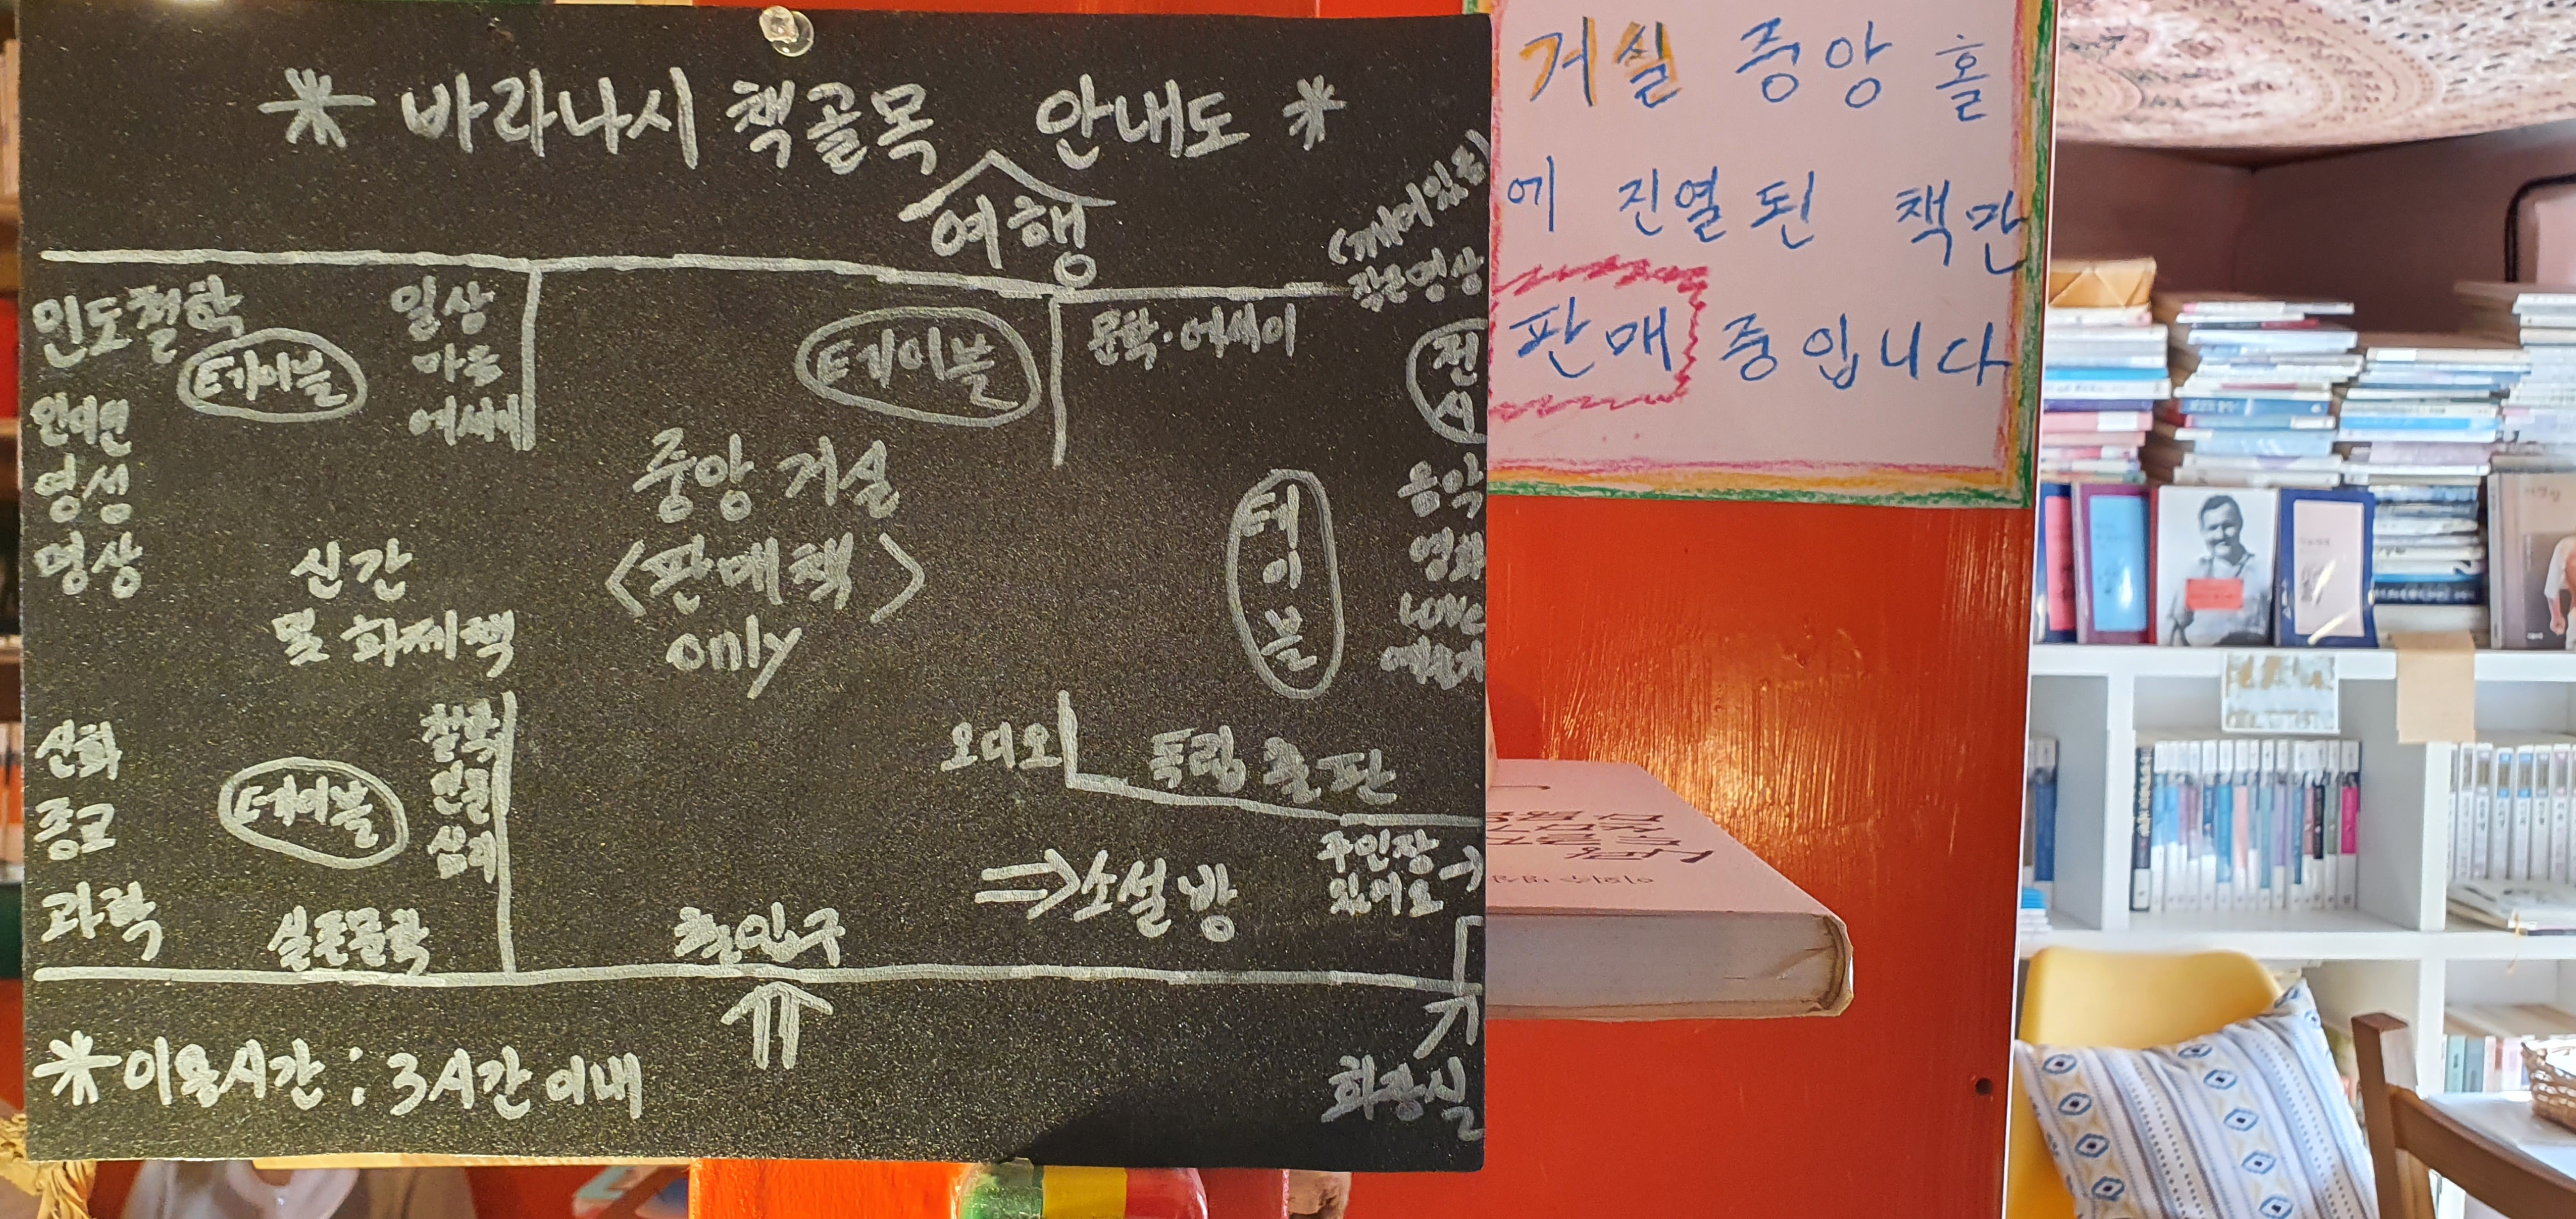 * 바라나시 책골목 안내도 *
여행
인도철학
테이블
일상
마음
에세이
영성
명상
신간
및 화제책
신화
종교
과학
테이블
철학
인문
심리
실존문학
테이블
중앙 거실
<판매책>
only
출입구
문학·에세이
(깨어있음)
작은명상
전시
테이블
음악
영화
LOVE
오디오
독립출판
⇒소설방
주인장→
있어요
화장실
*이용시간 : 3시간 이내
거실 중앙 홀
에 진열된 책만
판매 중입니다